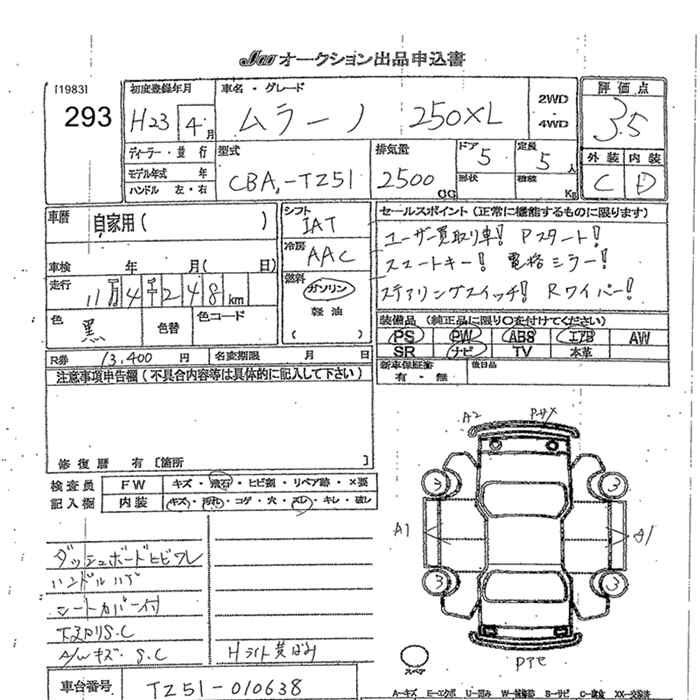 JU オークション出品申込書
[1983]
293
初度登録年月
H23 4月
車名・グレード
ムラーノ 250XL
2WD
4WD
評価点
3.5
外装 内装
C D
ディーラー・並行
モデル年式 年
ハンドル 左・右
型式
CBA-TZ51
排気量
2500
CC
ドア
5
形状
定員
5人
積載
Kg
車歴
自家用( )
車検 年 月( 日)
走行
11万4千248km
色
黒
色替
色コード
シフト
IAT
冷房
AAC
燃料
ガソリン
軽油
( )
セールスポイント(正常に機能するものに限ります)
ユーザー買取り車! Pスタート!
スマートキー! 電格ミラー!
ステアリングスイッチ! Rワイパー!
装備品 (純正品に限り○を付けてください)
PS PW ABS エアB AW
SR ナビ TV 本革
新車保証書
有・無
後日品
R券 13,400 円
名変期限 月 日
注意事項申告欄(不具合内容等は具体的に記入して下さい)
修復歴 有 [箇所 ]
検査員
記入欄
FW キズ・飛石・ヒビ割・リペア跡・×要
内装 キズ・汚れ・コゲ・穴・スレ・キレ・破レ
ダッシュボードヒビワレ
ハンドルハゲ
シートカバー付
下廻りS.C
A/Wキズ S.C
Hライト黄ばみ
A2
3
3
A1
A1
3
3
スペア
車台番号
TZ51-010638
A-キズ E-エクボ U-凹み W-補修跡 S-サビ C-腐食 XX-交換済